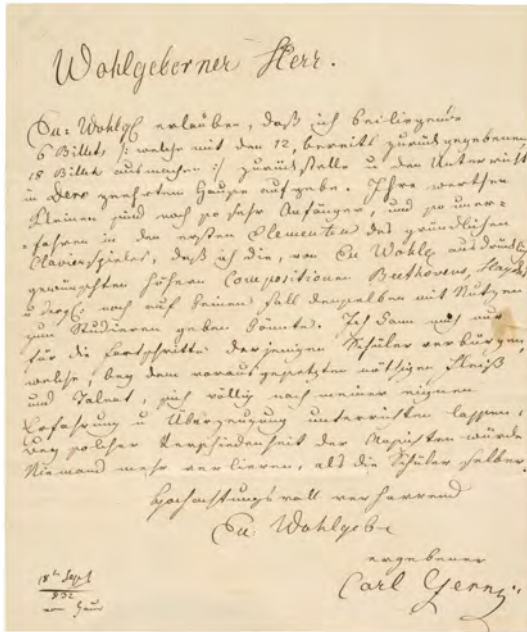 Wohlgeborner Herr.
Eu: Wohlg erlauben, daß ich beiliegende
6 Billets /: welche mit den 12, bereits zurückgegebenen,
18 Billet ausmachen :/ zurückstelle u den Unterricht
in Dero geehrtem Hause aufgebe. Ihre werthen
Kleinen sind noch so sehr Anfänger, und so uner=
=fahren in den ersten Elementen des gründlichen
Clavierspieles, daß ich die, von Eu Wohlg ausdrücklich
gewünschten höhern Compositionen Beethovens, Haydns
u dergl: noch auf keinen Fall denselben mit Nutzen
zum Studieren geben könnte. Ich kann mich nur
für die Fortschritte derjenigen Schüler verbürgen,
welche, bey dem vorausgesetzten nöthigen Fleiß
und Talent, sich völlig nach meiner eignen
Erfahrung u Überzeugung unterrichten lassen,
bey solcher Verschiedenheit der Ansichten würde
Niemand mehr verlieren, als die Schüler selber.
Hochachtungsvoll verharrend
Eu: Wohlgeb
ergebener
Carl Czerny
18 Sept
832